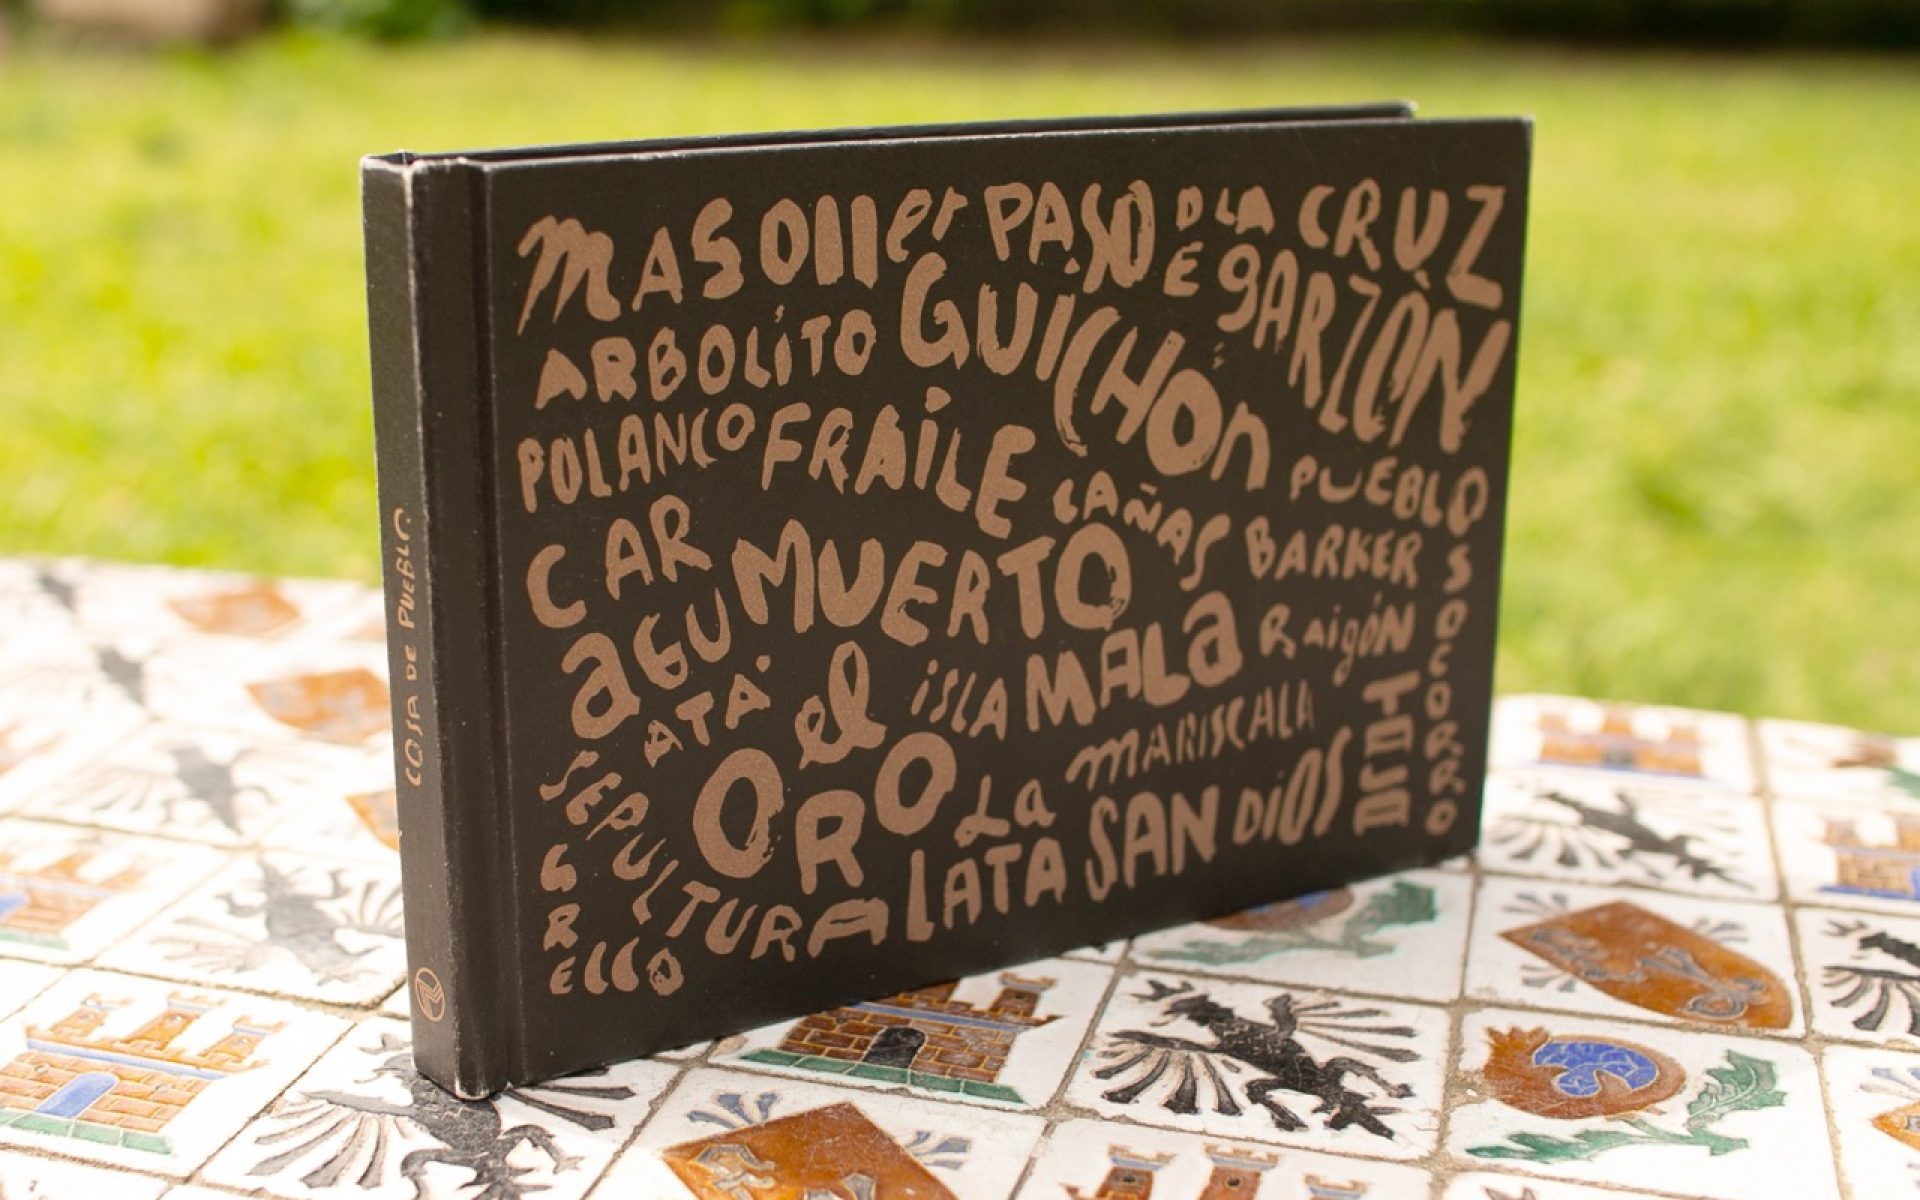 COSA DE PUEBLO
MASOller PASO DE LA CRUZ
ARBOLITO GUICHÓN GARZÓN
POLANCO FRAILE CAÑAS PUEBLO SOCORRO
CAR AGU MUERTO BARKER
ATÁ el isla MALA Raigón
SEPULTURA ORO LA MARISCALA
GRECCO LATA SAN DIOS